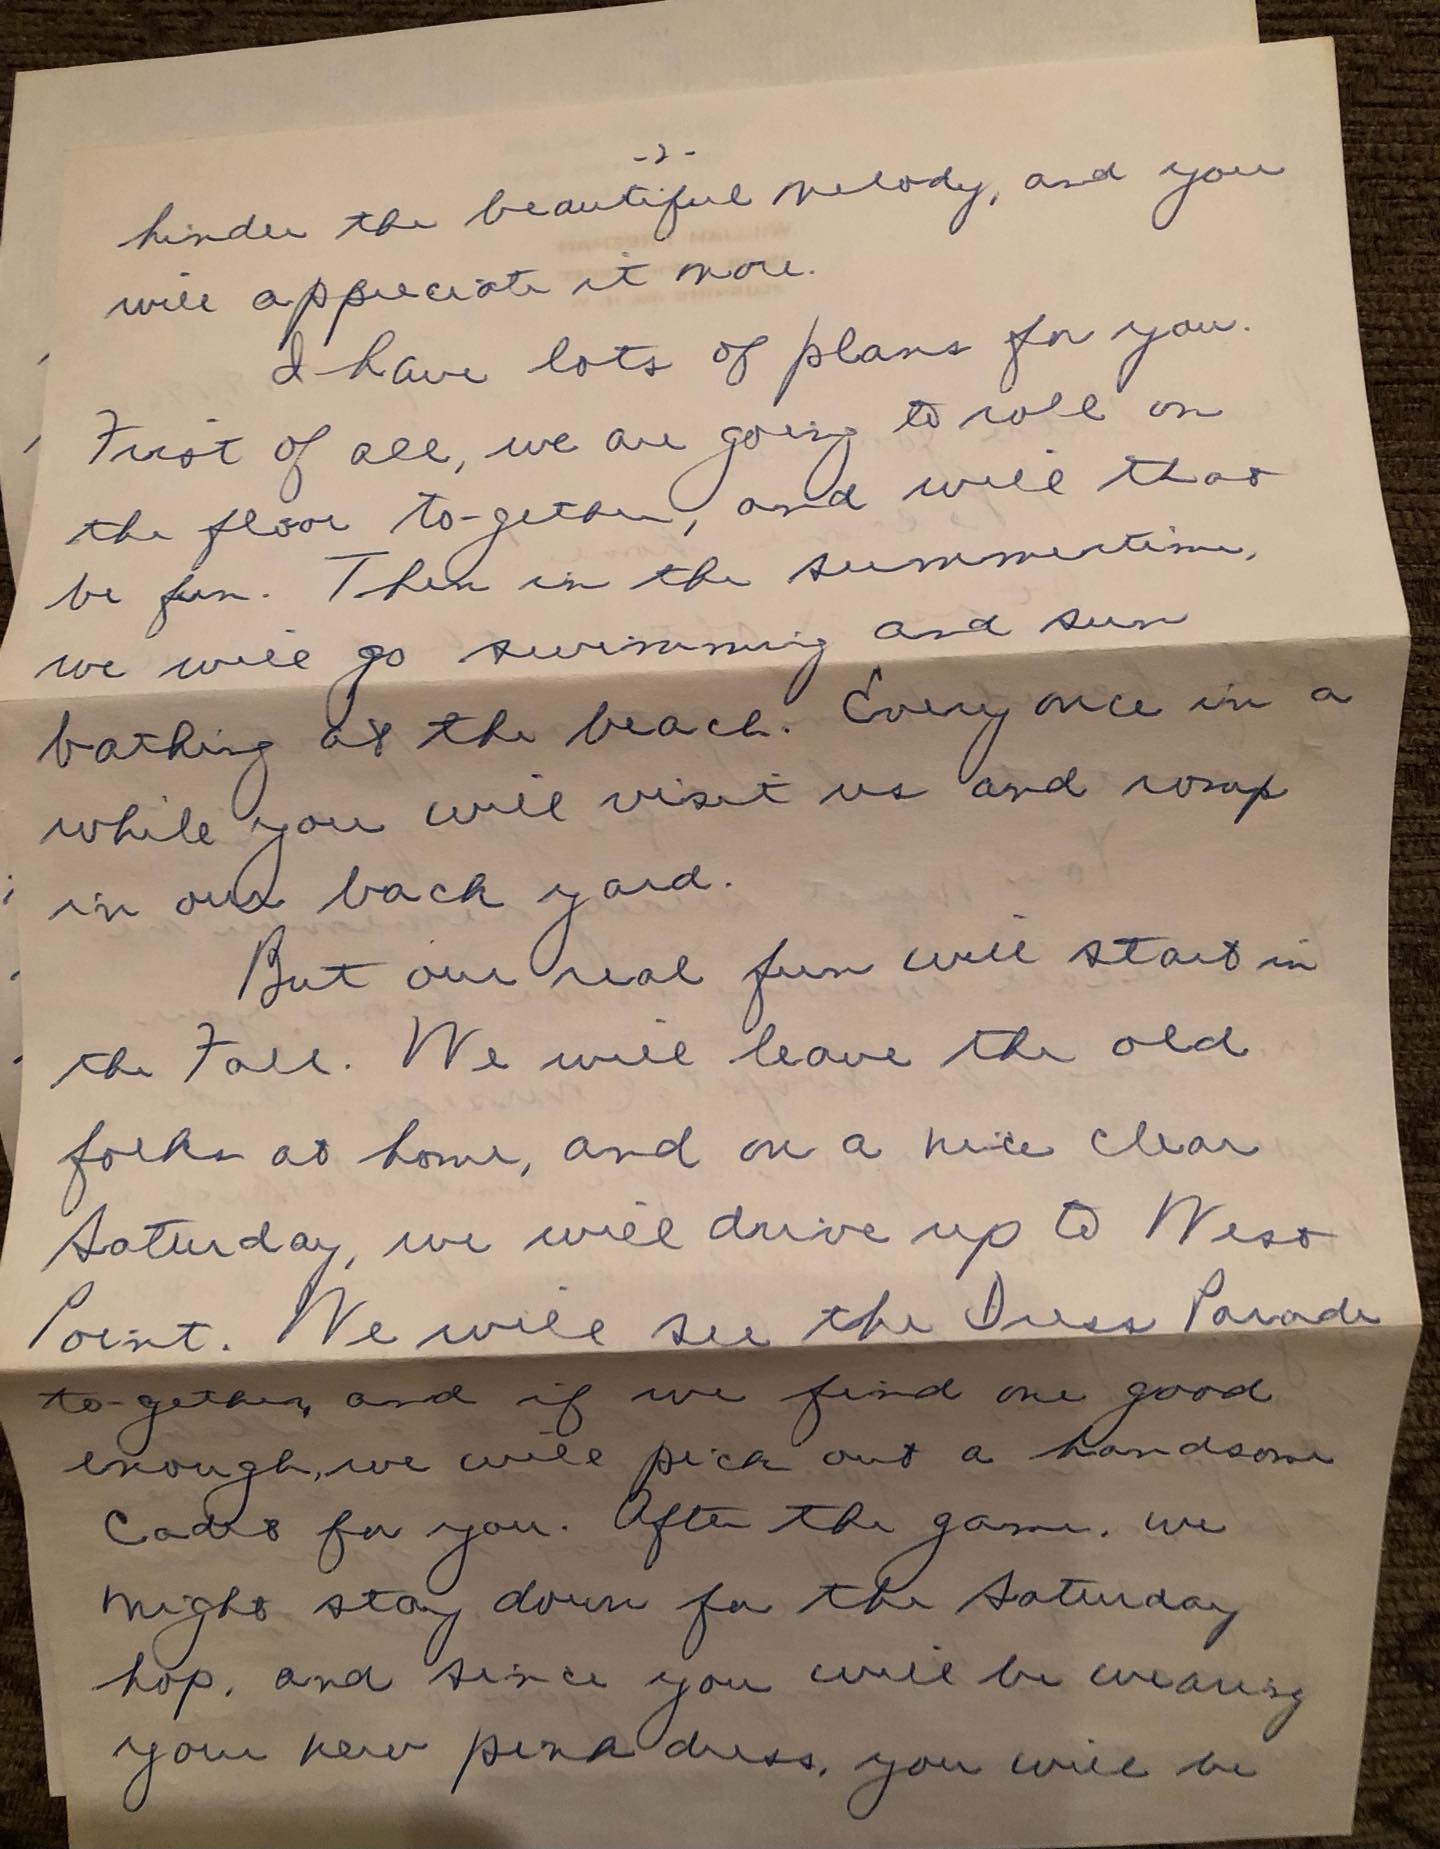 -2-
hinder the beautiful melody, and you
will appreciate it more.
I have lots of plans for you.
First of all, we are going to roll on
the floor to-gether, and will that
be fun. Then in the summertime,
we will go swimming and sun
bathing at the beach. Every once in a
while you will visit us and romp
in our back yard.
But our real fun will start in
the Fall. We will leave the old
folks at home, and on a nice clear
Saturday, we will drive up to West
Point. We will see the Dress Parade
to-gether, and if we find one good
enough, we will pick out a handsome
Cadet for you. After the game, we
might stay down for the Saturday
hop, and since you will be wearing
your new pink dress, you will be